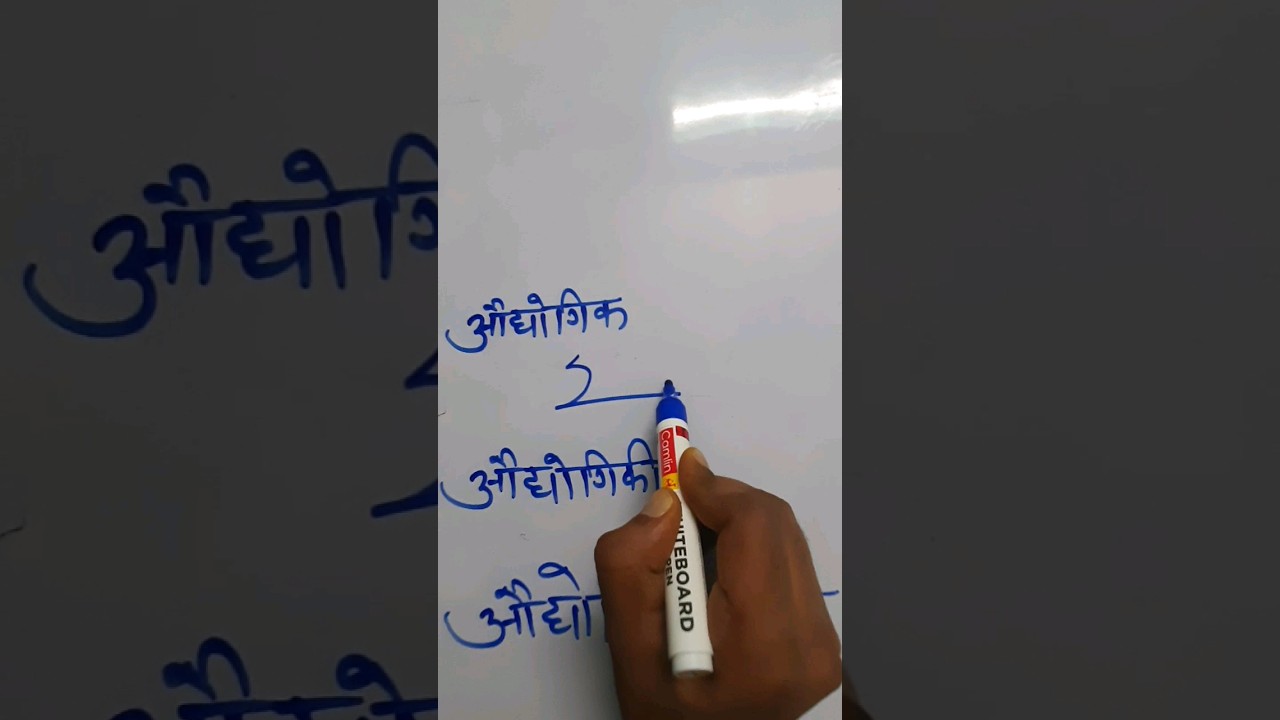 औद्योगिक
औद्योगिकी
औद्यो
Camlin
WHITEBOARD
PEN